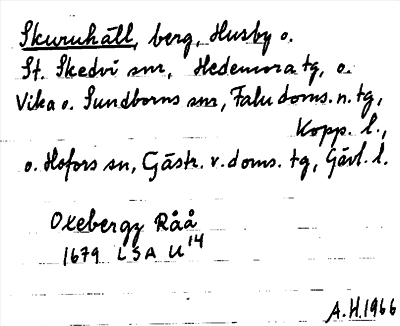 Skuruhäll, berg, Husby o.
St. Skedvi snr, Hedemora tg, o.
Vika o. Sundborns snr, Falu doms. n. tg,
Kopp. l.,
o. Hofors sn, Gästr. v. doms. tg, Gävl. l.
Oxebergz Råå
1679 LSA U14
A.H. 1966